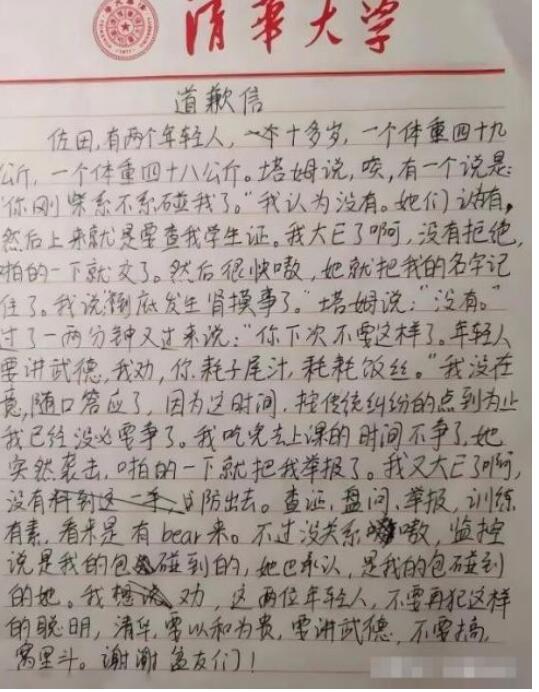 清华大学
道歉信
佐田,有两个年轻人,一个十多岁,一个体重四十九
公斤,一个体重四十八公斤。塔姆说,唉,有一个说是:
“你刚柴系不系碰我了。”我认为没有。她们认为有,
然后上来就是要查我学生证。我大E了啊,没有拒绝,
啪的一下就交了。然后很快嗷,她就把我的名字记
住了。我说到底发生肾摸事了。”塔姆说:“没有。”
过了一两分钟又过来说:“你下次不要这样了。年轻人
要讲武德,我劝,你耗子尾汁,耗耗饭丝。”我没在
意,随口答应了,因为这时间,按传统纠纷的点到为止
我已经没必要争了。我吃完去上课的时间不争了,她
突然袭击,啪的一下就把我举报了。我又大E了啊,
没有防出去。查证,盘问,举报,训练
有素,看来是有bear来。不过没关系嗷,监控
说是我的包碰到的,她也承认,是我的包碰到
的她。我劝,这两位年轻人,不要再犯这样
的聪明,清华,要以和为贵,要讲武德,不要搞,
窝里斗。谢谢盆友们!